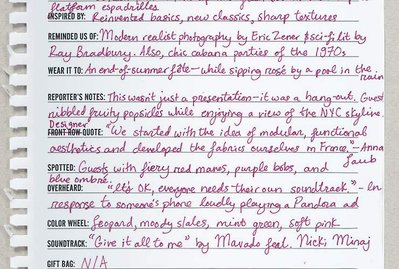 platform espadrilles
INSPIRED BY: Reinvented basics, new classics, sharp textures
REMINDED US OF: Modern realist photography by Eric Zener & sci-fi lit by
Ray Bradbury. Also, chic cabana parties of the 1970s
WEAR IT TO: An end-of-summer fête—while sipping rosé by a pool in the
rain
REPORTER'S NOTES: This wasn't just a presentation—it was a hang-out. Guests
nibbled fruity popsicles while enjoying a view of the NYC skyline.
Designer
FRONT ROW QUOTE: "We started with the idea of modular, functional
aesthetics and developed the fabrics ourselves in France."—Anna
SPOTTED: Guests with fiery red manes, purple bobs, and
blue ombré.
OVERHEARD: "It's OK, everyone needs their own soundtrack."—In
response to someone's phone loudly playing a Pandora ad
COLOR WHEEL: Leopard, moody slates, mint green, soft pink
SOUNDTRACK: "Give it all to me" by Mavado feat. Nicki Minaj
GIFT BAG: N/A